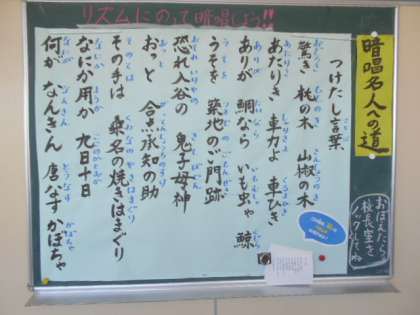 リズムにのって暗唱しよう!!
暗唱名人への道
おぼえたら
校長室を
ノックしてね
つけたし言葉
驚き 桃の木 山椒の木
あたりき 車力よ 車ひき
ありが 鯛なら いも虫ゃ 鯨
うそを 築地の ご門跡
恐れ入谷の 鬼子母神
おっと 合点承知の助
その手は 桑名の焼きはまぐり
なにか用か 九日十日
何が なんきん 唐なす かぼちゃ